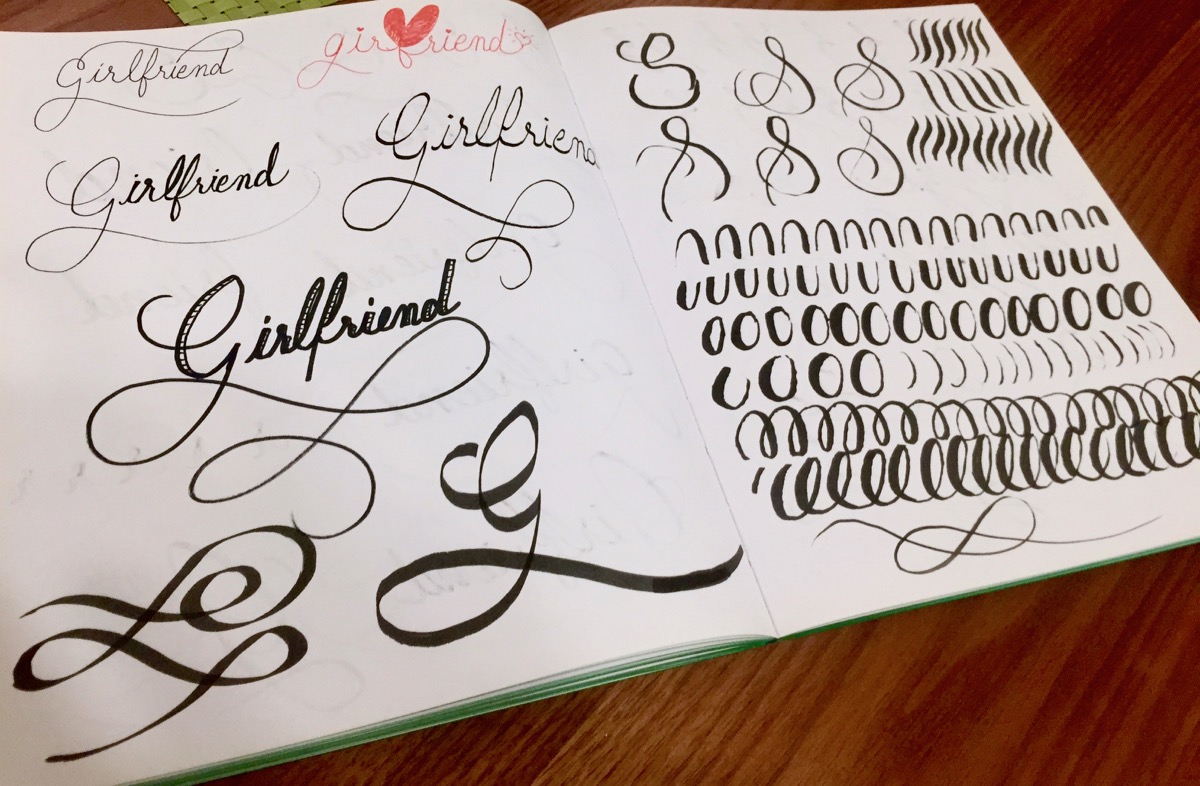 Girlfriend
girlfriend
Girlfriend
Girlfriend
Girlfriend
G
S S S
S S S